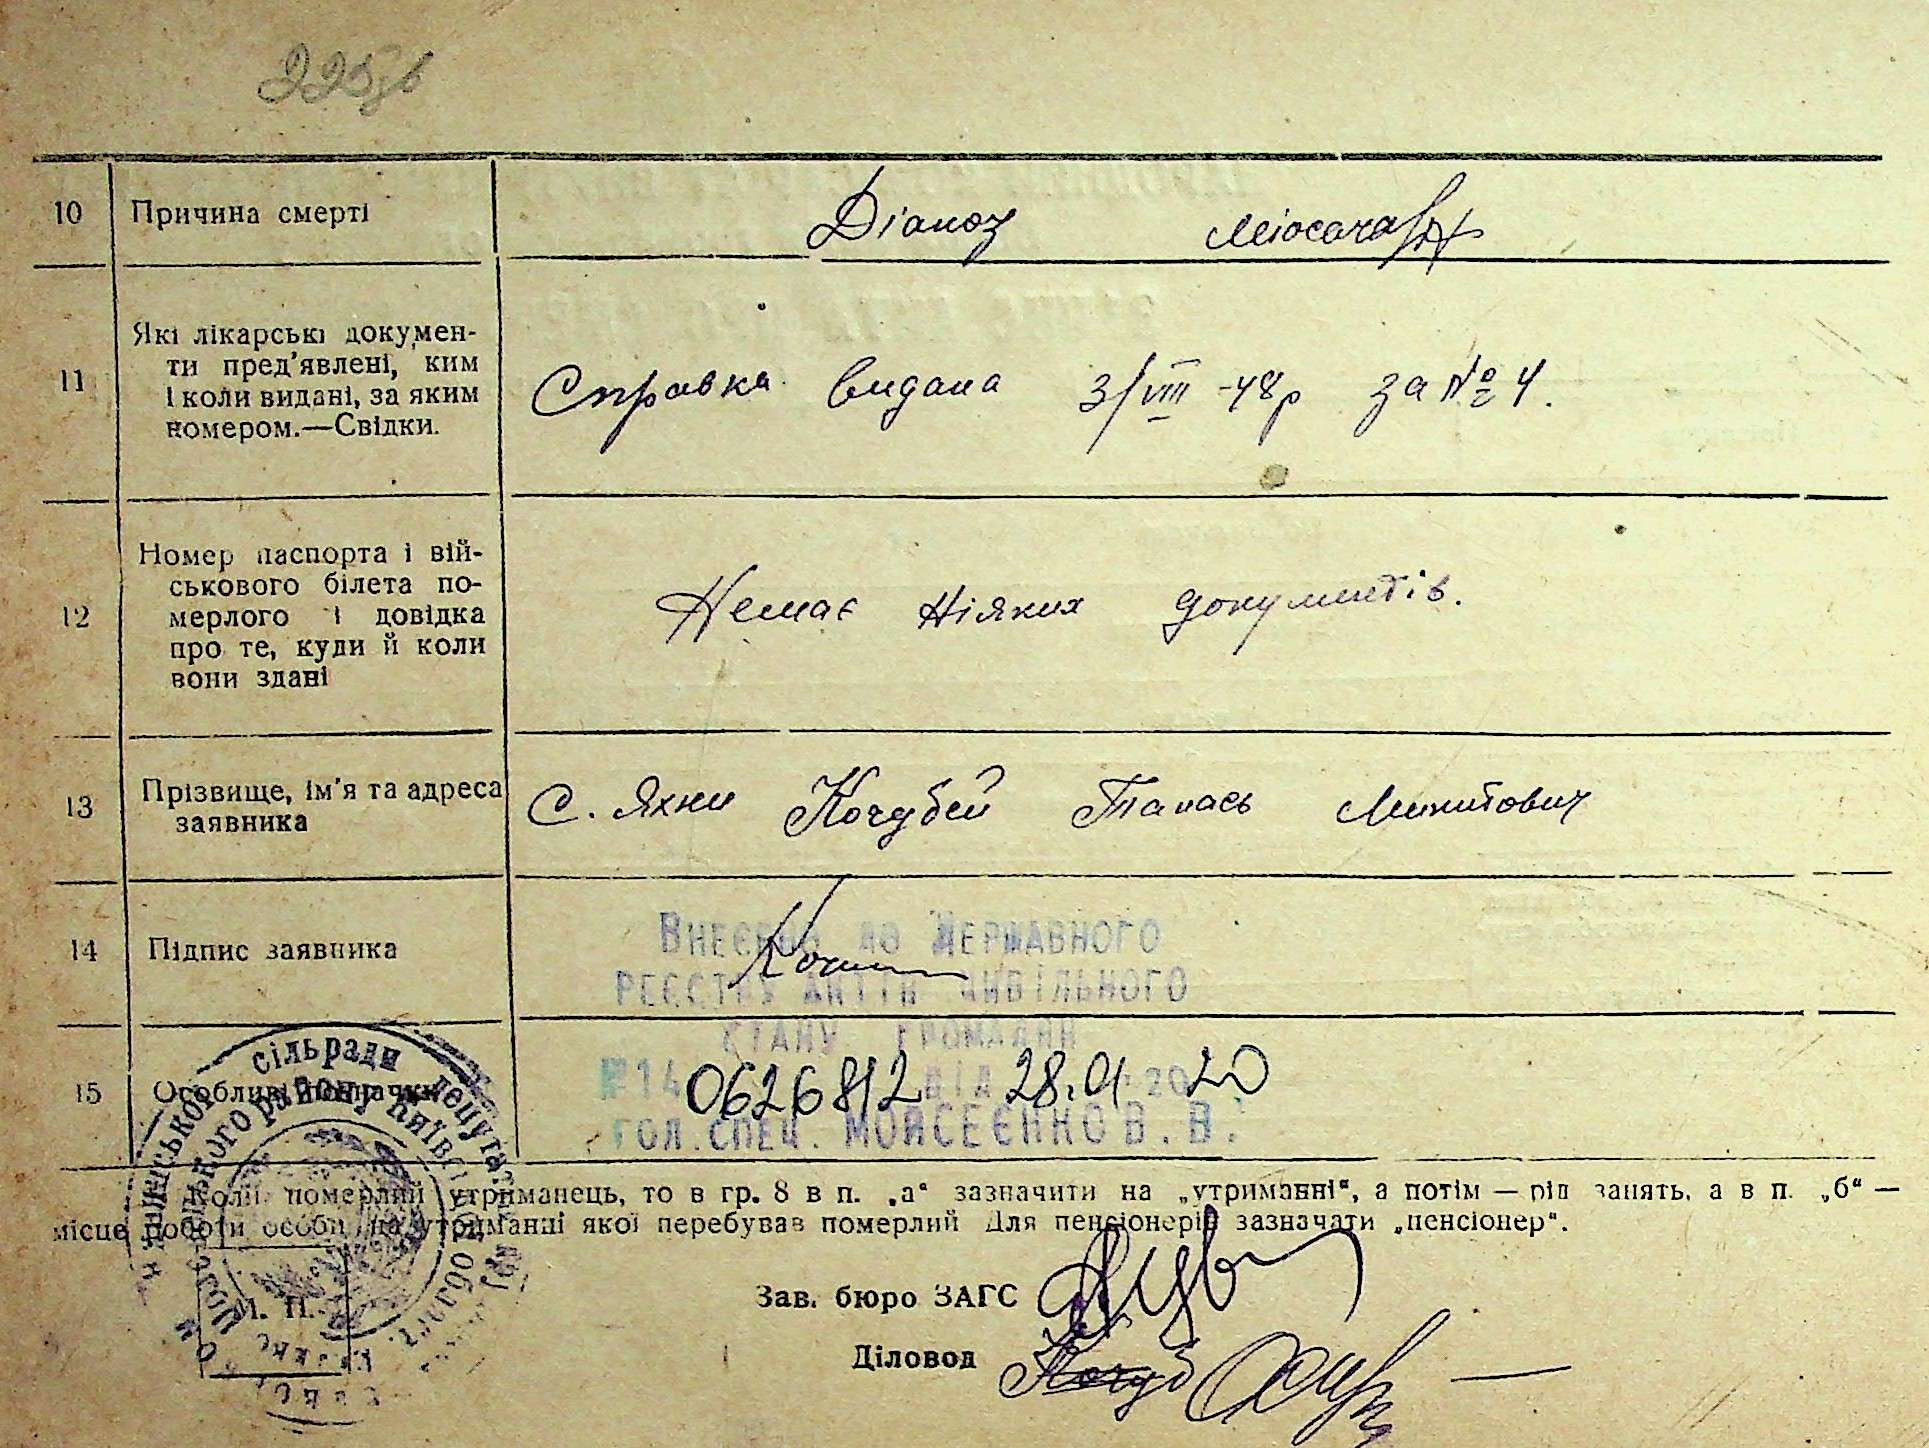 225зв
10 Причина смерті Діаноз міосача
11 Які лікарські докумен-
ти пред'явлені, ким
і коли видані, за яким
номером.—Свідки.
Справка видана 3/VIII -48р за № 4.
12 Номер паспорта і вій-
ськового білета по-
мерлого і довідка
про те, куди й коли
вони здані
Немає ніяких документів.
13 Прізвище, ім'я та адреса
заявника
С. Яхни Кочубей Танась Микитович
14 Підпис заявника
Внесено до Державного
реєстру актів цивільного
стану громадян
15 Особливі позначки
№14 0626812 від 28.01 2020
гол. спец. Моисеєнко В. В.
Коли померлий утриманець, то в гр. 8 в п. „а“ зазначити на „утриманні“, а потім — рід занять, а в п. „б“ —
місце роботи особи, на утриманні якої перебував померлий Для пенсіонерів зазначати „пенсіонер“.
Зав. бюро ЗАГС
М. П.
Діловод
сільради
району Київської